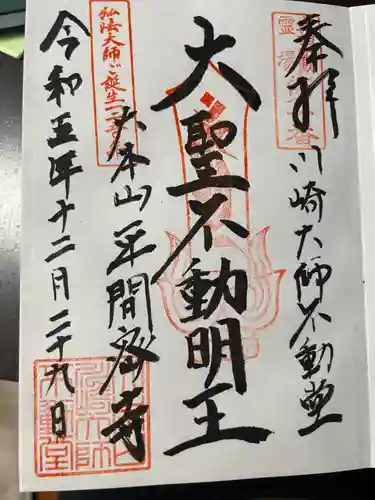 奉拝 川崎大師不動堂
大聖不動明王
大本山 平間寺
令和五年十二月二十九日
弘法大師ご誕生